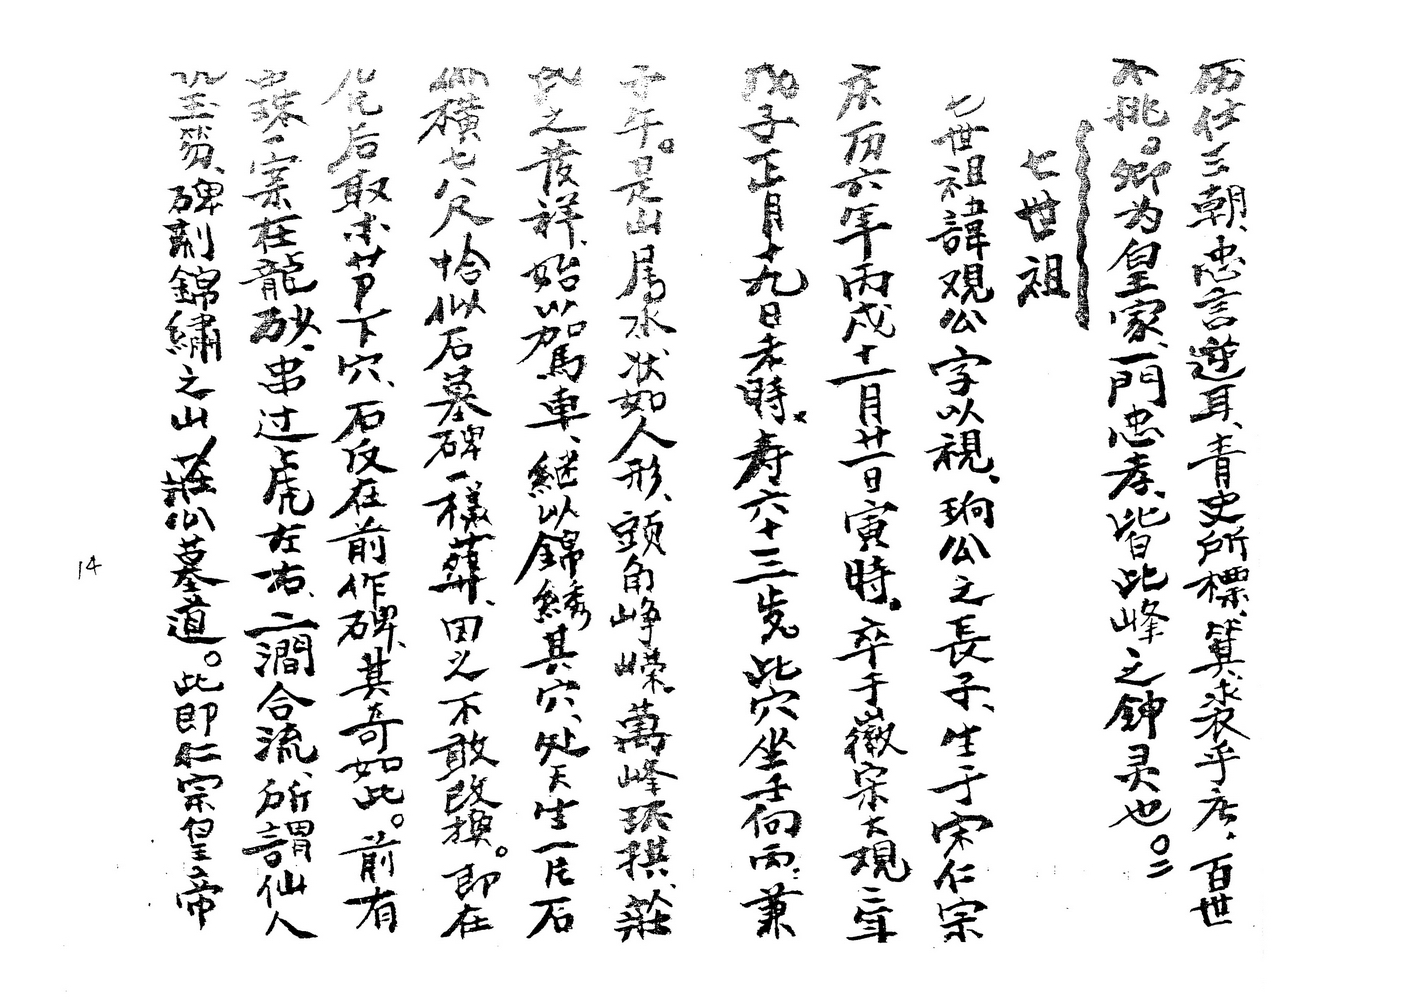 历仕三朝、忠言逆耳、青史所標、箕裘乎左、百世
不祧。卿为皇家、一門忠孝、皆此峰之鈡灵也。
七世祖
七世祖諱观公字以視、珦公之長子、生于宋仁宗
庆历六年丙戌十一月廿一日寅時。卒于徽宗大观二年
戊子正月十九日未時。寿六十三歲。此穴坐壬向丙、兼
子午。是山属水状如人形、頭角峥嵘。萬峰环拱、莊
氏之發祥、始以駕車、継以錦綉其穴、处天生一片石
横七八尺恰似石墓碑一樣葬、田之不敢改换。即在
后取木节下穴、石反在前作碑、其奇如此。前有
寀在龍砂、串过虎左右、二澗合流、所謂仙人
玉笏、碑刻錦繡之山、莊公墓道。此即仁宗皇帝
14